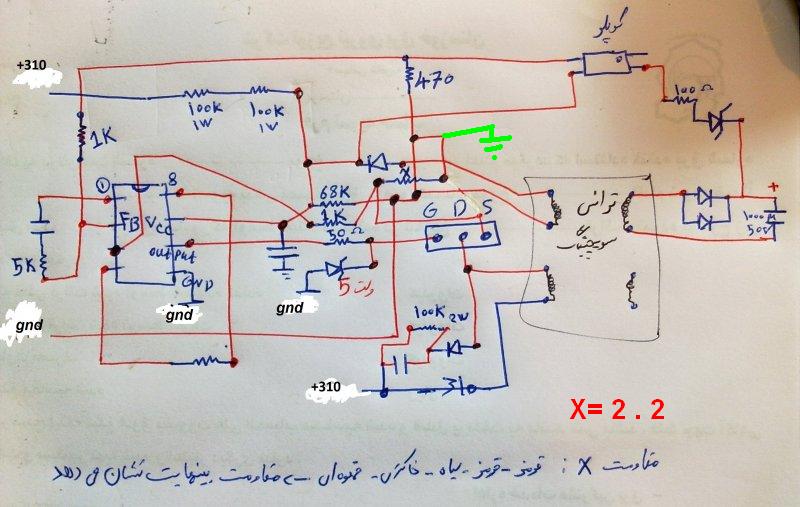 کوپلر
+310
470
100Ω
100K
1W
100K
1W
1K
+
1000M
50V
① 8
FB Vcc
out put
GND
68K
X
1K
50Ω
G D S
ترانس
سوییچینگ
5K
5 ولت
gnd
gnd
gnd
100K 2W
+310
X= 2 . 2
مقاومت X : قرمز - قرمز - سیاه - خاکستری - قهوه‌ای - مقاومت بینهایت نشان می دهد